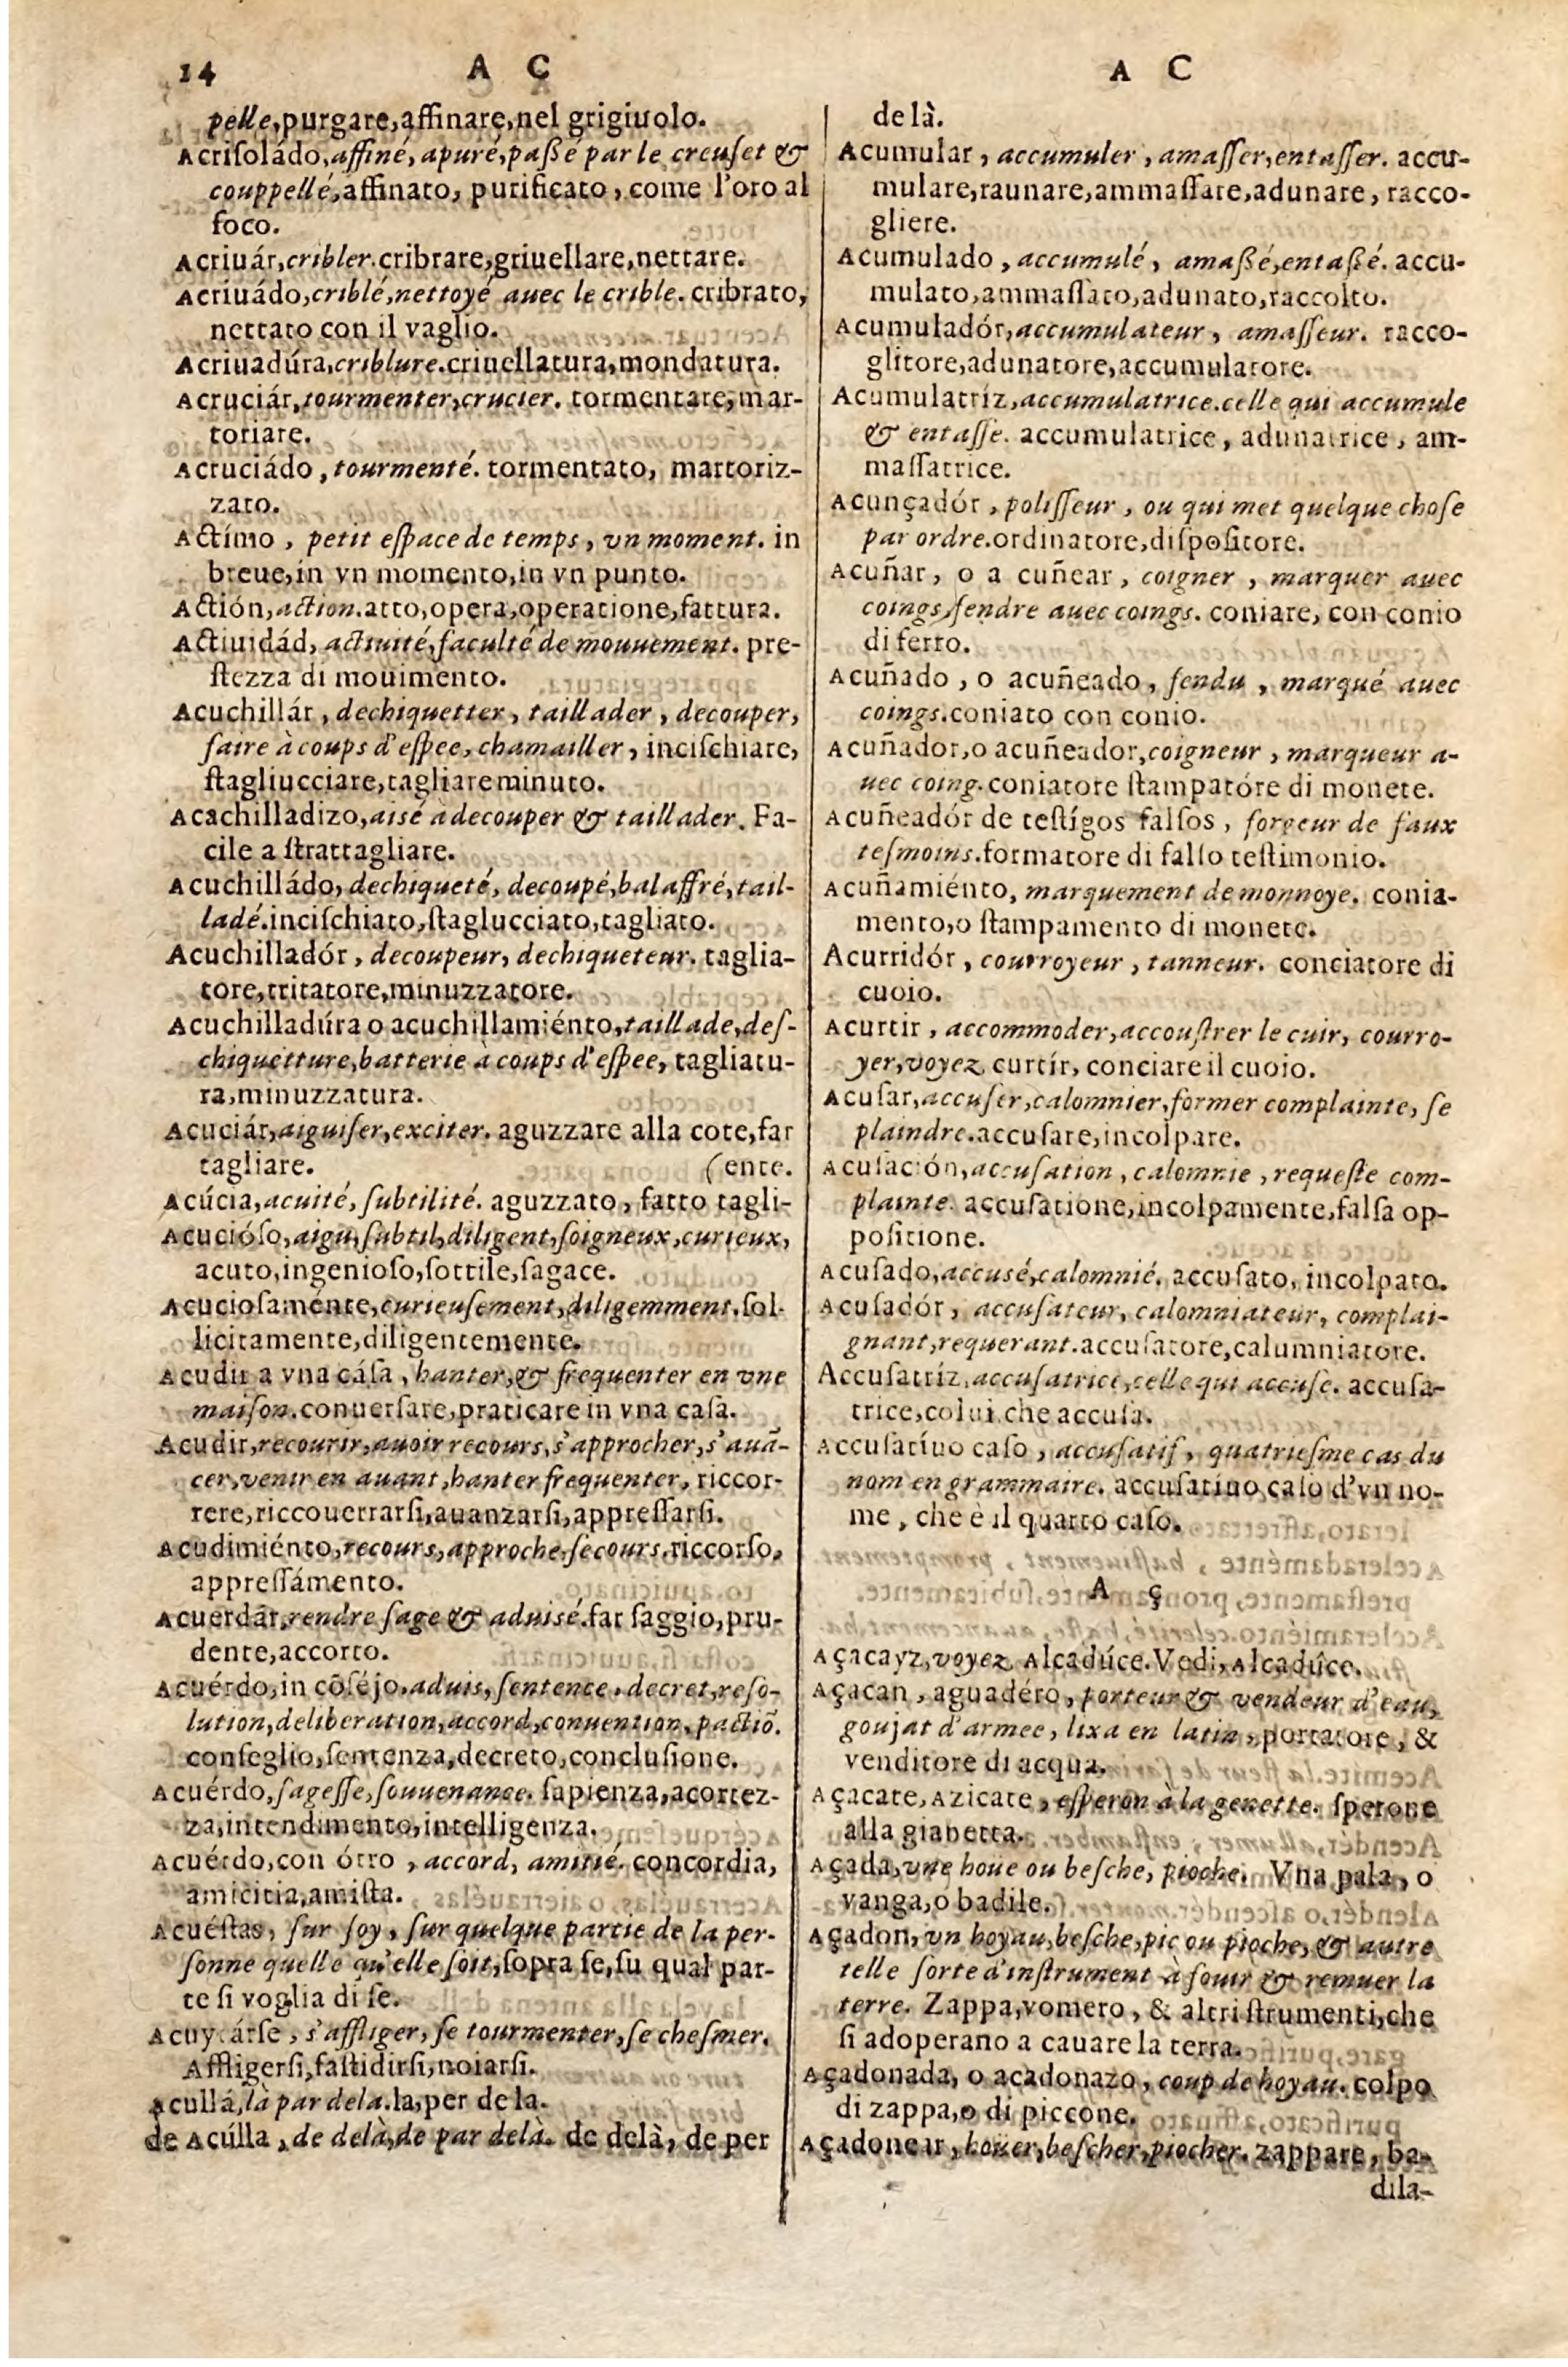 14 A C
pelle,purgare,affinare,nel grigiuolo.
Acriſoládo,affiné, apuré,paßé par le creuſet &
couppellé,affinato, purificato, come l'oro al
foco.
Acriuár,cribler.cribrare,griuellare,nettare.
Acriuádo,criblé,nettoyé auec le crible. cribrato,
nettato con il vaglio.
Acriuadúra,criblure.criuellatura,mondatura.
Acruciár,tourmenter,crucier. tormentare,mar-
toriare.
Acruciádo, tourmenté. tormentato, martoriz-
zato.
Actímo, petit eſpace de temps, vn moment. in
breue,in vn momento,in vn punto.
Actión,action.atto,opera,operatione,fattura.
Actiuidád, actiuité,faculté de mouuement. pre-
ſtezza di mouimento.
Acuchillár, dechiquetter, taillader, decouper,
faire à coups d'eſpee, chamailler, inciſchiare,
ſtagliucciare,tagliare minuto.
Acachilladizo,aisé à decouper & taillader. Fa-
cile a ſtrattagliare.
Acuchilládo, dechiqueté, decoupé,balaffré,tail-
ladé.inciſchiato,ſtaglucciato,tagliato.
Acuchilladór, decoupeur, dechiqueteur. taglia-
tore,tritatore,minuzzatore.
Acuchilladúra o acuchillamiénto,taillade,deſ-
chiquetture,batterie à coups d'eſpee, tagliatu-
ra,minuzzatura.
Acuciár,aiguiſer,exciter. aguzzare alla cote,far
tagliare. (ente.
Acúcia,acuité, ſubtilité. aguzzato, fatto tagli-
Acucióſo,aigu,ſubtil,diligent,ſoigneux,curieux,
acuto,ingenioſo,ſottile,ſagace.
Acucioſaménte,curieuſement,diligemment.ſol-
licitamente,diligentemente.
Acudir a vna cáſa, hanter,& frequenter en vne
maiſon.conuerſare,praticare in vna caſa.
Acudir,recourir,auoir recours,s'approcher,s'auā-
cer,venir en auant,hanter frequenter, riccor-
rere,riccouerrarſi,auanzarſi,appreſſarſi.
Acudimiénto,recours,approche,ſecours.riccorſo,
appreſſámento.
Acuerdár,rendre ſage & aduisé.far ſaggio,pru-
dente,accorto.
Acuérdo,in cōſéjo.aduis, ſentence. decret,reſo-
lution,deliberation,accord,conuention,pactiō.
conſeglio,ſentenza,decreto,concluſione.
Acuérdo,ſageſſe,ſouuenance. ſapienza,acortez-
za,intendimento,intelligenza.
Acuérdo,con ótro, accord, amitié. concordia,
amicitia,amiſta.
Acuéſtas, ſur ſoy, ſur quelque partie de la per-
ſonne quelle qu'elle ſoit,ſopra ſe,ſu qual par-
te ſi voglia di ſe.
s'affliger, ſe tourmenter,ſe cheſmer.
Affligerſi,faſtidirſi,noiarſi.
Acullá,là par dela.la,per de la.
de Acúlla, de delà,de par delà. de delà, de per
A C
de là.
Acumular, accumuler, amaſſer,entaſſer. accu-
mulare,raunare,ammaſſare,adunare, racco-
gliere.
Acumulado, accumulé, amaßé,entaßé. accu-
mulato,ammaſſato,adunato,raccolto.
Acumuladór,accumulateur, amaſſeur. racco-
glitore,adunatore,accumulatore.
Acumulatriz,accumulatrice.celle qui accumule
& entaſſe. accumulatrice, adunatrice, am-
maſſatrice.
Acunçadór, poliſſeur, ou qui met quelque choſe
par ordre.ordinatore,diſpoſitore.
Acuñar, o a cuñear, coigner, marquer auec
coings,fendre auec coings. coniare, con conio
di ferro.
Acuñado, o acuñeado, fendu, marqué auec
coings.coniato con conio.
Acuñador,o acuñeador,coigneur, marqueur a-
uec coing.coniatore ſtampatóre di monete.
Acuñeadór de teſtígos falſos, forgeur de faux
teſmoins.formatore di falſo teſtimonio.
Acuñamiénto, marquement de monnoye. conia-
mento,o ſtampamento di monete.
Acurridór, courroyeur, tanneur. conciatore di
cuoio.
Acurtir, accommoder,accouſtrer le cuir, courro-
yer,voyez curtír, conciare il cuoio.
Acuſar,accuſer,calomnier,former complainte, ſe
plaindre.accuſare,incolpare.
Acuſación,accuſation, calomnie, requeſte com-
plainte. accuſatione,incolpamente,falſa op-
poſitione.
Acuſado,accusé,calomnié. accuſato, incolpato.
Acuſadór, accuſateur, calomniateur, complai-
gnant,requerant.accuſatore,calumniatore.
Accuſatríz,accuſatrice,celle qui accuſe. accuſa-
trice,colui che accuſa.
Accuſatíuo caſo, accuſatif, quatrieſme cas du
nom en grammaire. accuſatiuo caſo d'vn no-
me, che è il quarto caſo.
A ç
Açacayz,voyez Alcadúce.Vedi,Alcadúce.
Açacan, aguadéro, porteur & vendeur d'eau,
goujat d'armee, lixa en latin, portatore, &
venditore di acqua.
Açacate, Azicate, eſperon à la genette. ſperone
alla gianetta.
Açada,vne houe ou beſche, pioche. Vna pala, o
vanga,o badile.
Açadon,vn hoyau,beſche,pic ou pioche, & autre
telle ſorte d'inſtrument à fouir & remuer la
terre. Zappa,vomero, & altri ſtrumenti,che
ſi adoperano a cauare la terra.
Açadonada, o acadonazo, coup de hoyau. colpo
di zappa,o di piccone.
Açadonear, houer,beſcher,piocher. zappare, ba-
dila-